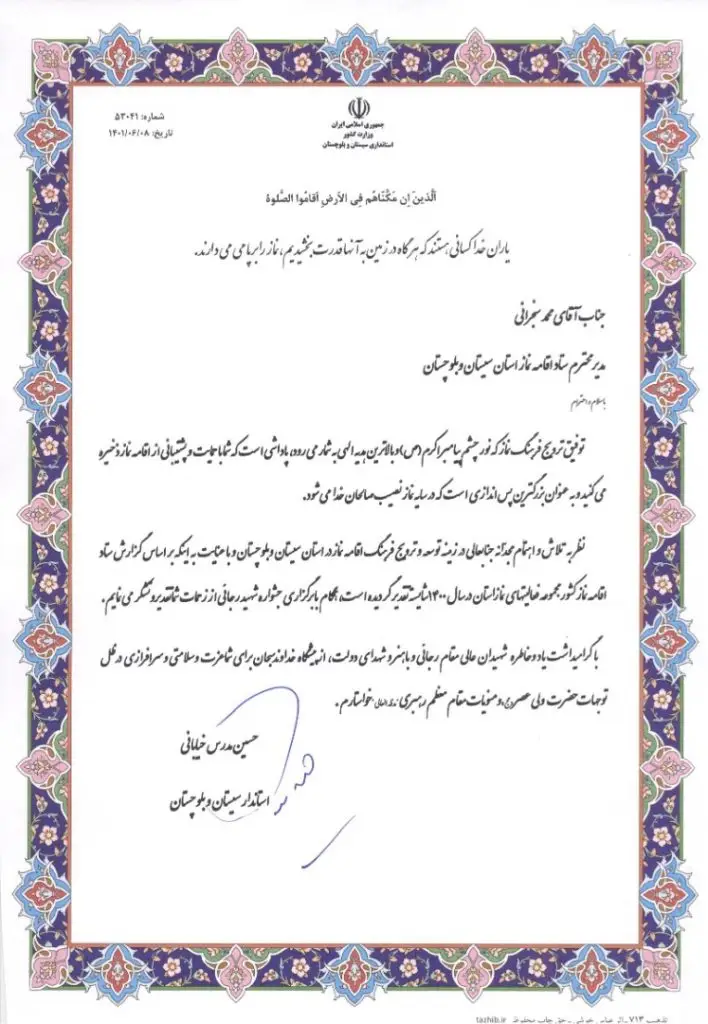 جمهوری اسلامی ایران
وزارت کشور
استانداری سیستان و بلوچستان
شماره: ۵۳۰۴۱
تاریخ: ۱۴۰۱/۰۶/۰۸
اَلَّذینَ اِن مَکَّنّاهُم فِی الاَرضِ اَقامُوا الصَّلوة
یاران خدا کسانی هستند که هرگاه در زمین به آنها قدرت بخشیدیم، نماز را برپا می می دارند.
جناب آقای محمد سنجرانی
مدیر محترم ستاد اقامه نماز استان سیستان و بلوچستان
با سلام و احترام
توفیق ترویج فرهنگ نماز که نور چشم پیامبر اکرم (ص) و بالاترین هدیه الهی به شمار می رود، پاداشی است که شما با حمایت و پشتیبانی از اقامه نماز ذخیره
می کنید و به عنوان بزرگترین پس اندازی است که در سایه نماز نصیب صالحان خدا می شود.
نظر به تلاش و اهتمام مجدانه جنابعالی در زمینه توسعه و ترویج فرهنگ اقامه نماز در استان سیستان و بلوچستان و با عنایت به اینکه بر اساس گزارش ستاد
اقامه نماز کشور مجموعه فعالیتهای نماز استان در سال ۱۴۰۰ شایسته تقدیر گردیده است، هنگام با برگزاری جشنواره شهید رجائی از زحمات شما تقدیر و تشکر می نمایم.
با گرامیداشت یاد و خاطره شهیدان عالی مقام رجائی و باهنر و شهدای دولت، از پیشگاه خداوند سبحان برای شما عزت و سلامتی و سرافرازی در ظل
توجهات حضرت ولی عصر(عج) و منویات مقام معظم رهبری (مدظله العالی) خواستارم.
حسین مدرس خیابانی
استاندار سیستان و بلوچستان
تذهیب ۷۱۳ - اثر عباس خوشی - حق چاپ محفوظ tazhib.ir